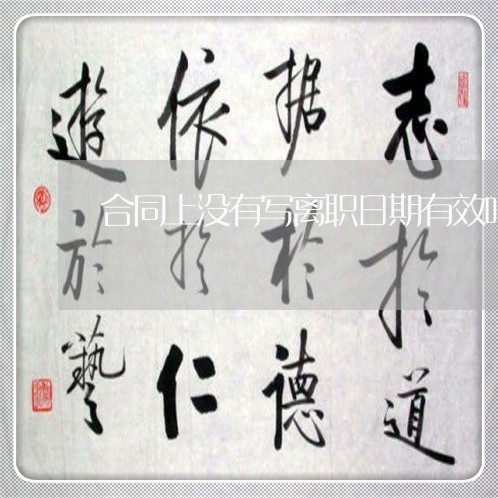 志於道
据於德
依於仁
遊於藝
合同上没有写离职日期有效